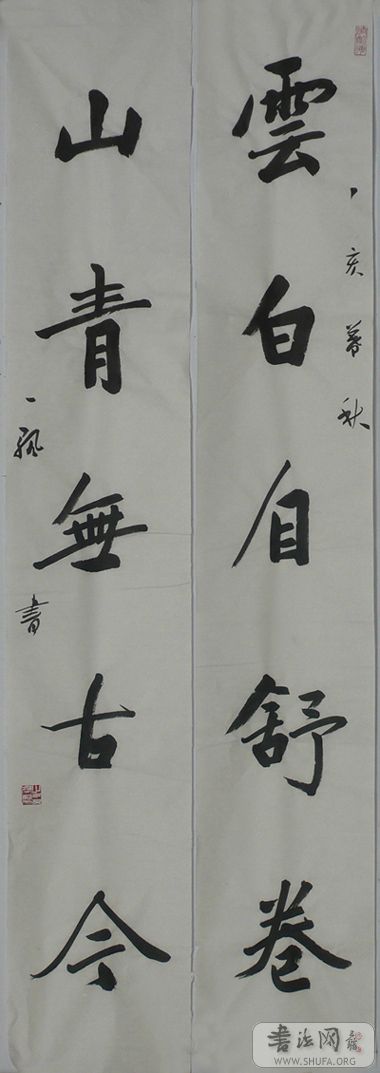 雲白自舒卷
丁亥暮秋
山青無古今
一飒書
書法网
WWW.SHUFA.ORG